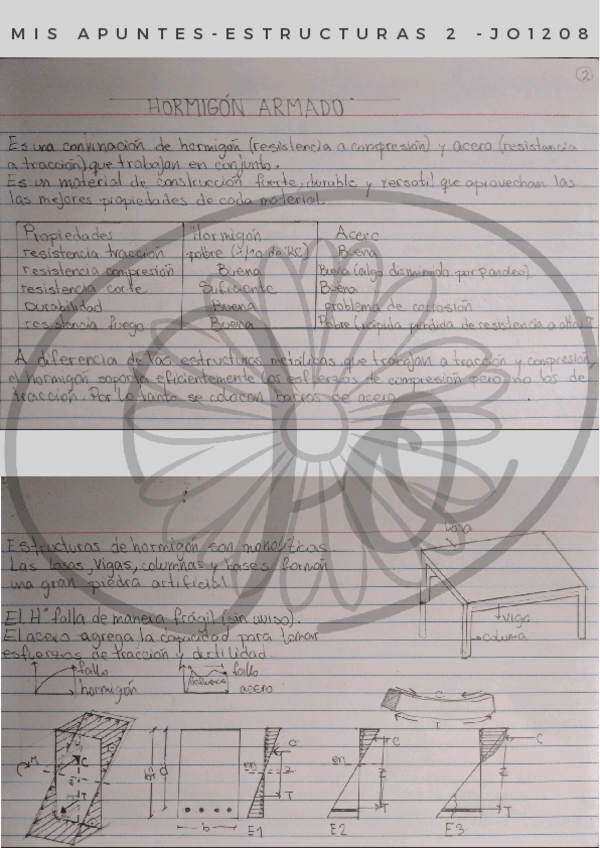 MIS APUNTES-ESTRUCTURAS 2 -JO1208
2
HORMIGÓN ARMADO
Es una convinación de hormigón (resistencia a compresión) y acero (resistencia
a tracción) que trabajan en conjunto.
Es un material de construcción fuerte, durable y versatil que aprovechan las
las mejores propiedades de cada material.
Propiedades Hormigón Acero
resistencia tracción pobre (1/10 de RC) Buena
resistencia compresión Buena Buena (algo disminuida por pandeo)
resistencia corte Suficiente Buena
Durabilidad Buena problema de corrosión
resistencia fuego Buena Pobre (rápida pérdida de resistencia a altas T
A diferencia de las estructuras metálicas que trabajan a tracción y compresión,
el hormigón soporta eficientemente los esfuerzos de compresión pero no los de
tracción. Por lo tanto se colocan barras de acero.
Estructuras de hormigón son monolíticas.
Las losas, vigas, columnas y bases forman
una gran piedra artificial.
losa
viga
columna
El H° falla de manera frágil (sin aviso).
El acero agrega la capacidad para tomar
esfuerzos de tracción y ductilidad
falla
hormigón
falla
acero
C
T
M
C
T
h
d
b
en
C
z
T
E1
en
C
z
T
E2
C
z
T
E3